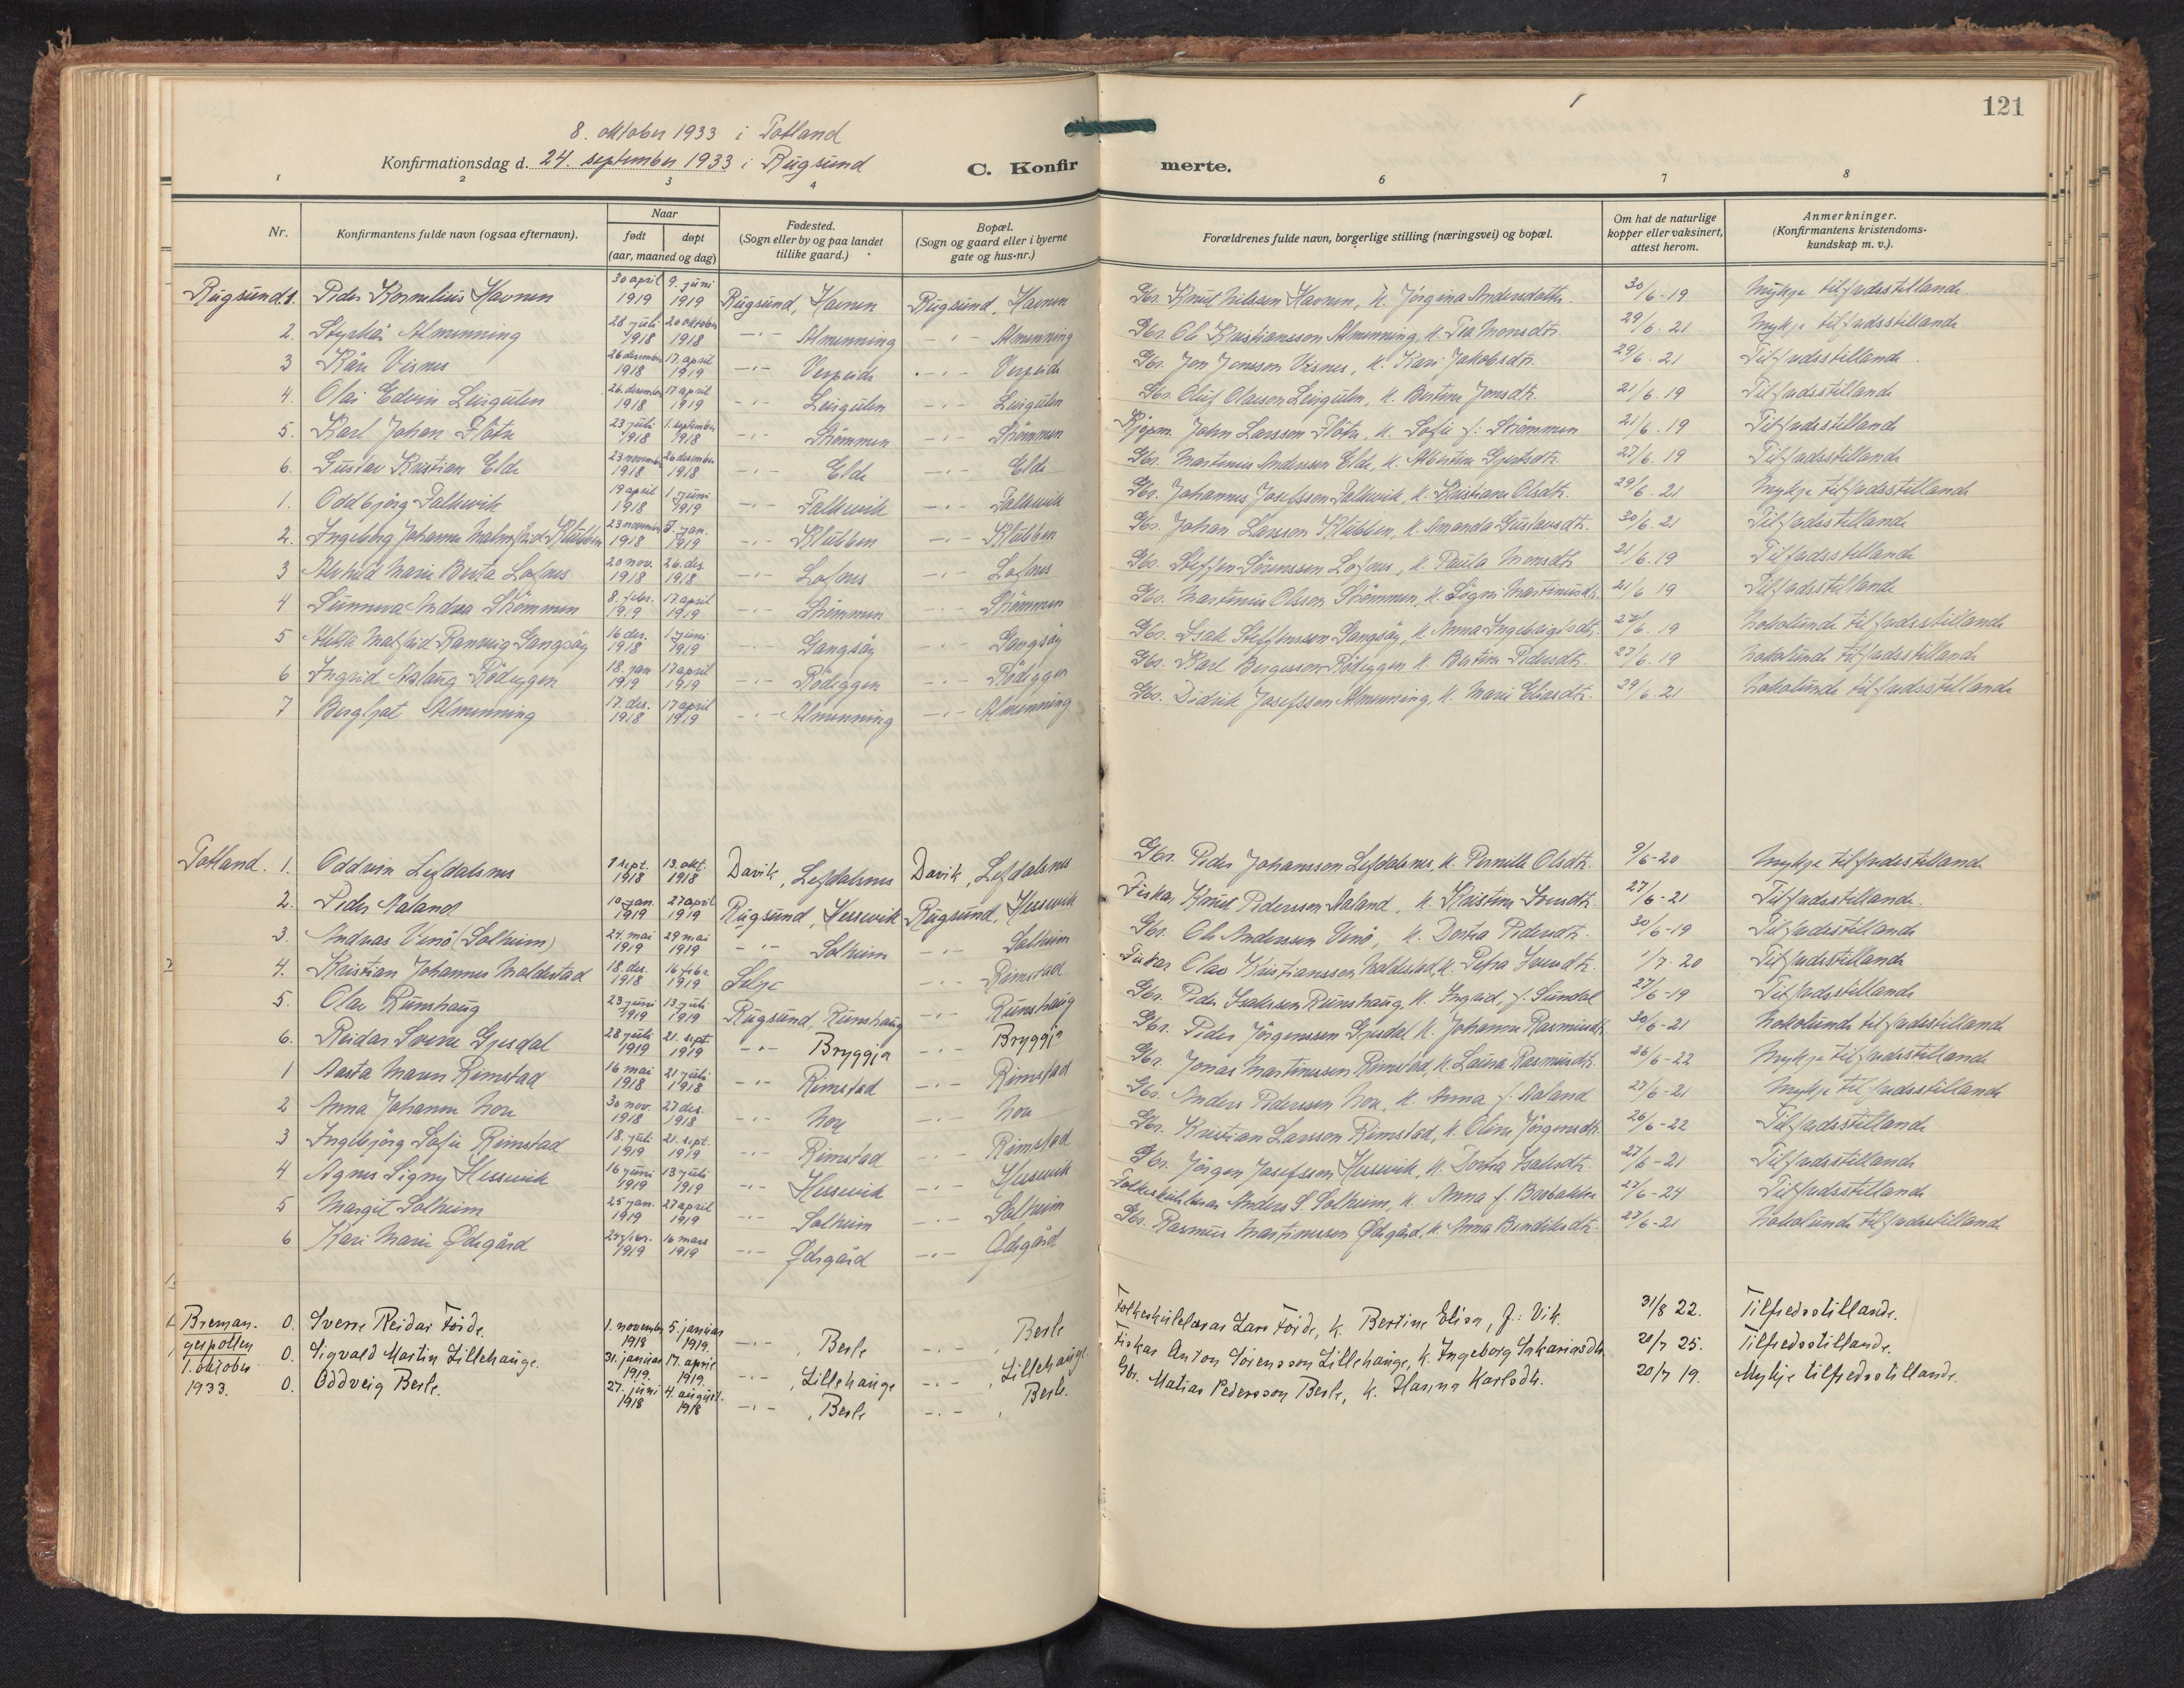 121
8. oktober 1933 i Totland
Konfirmationsdag d. 24. september 1933 i Rugsund
C. Konfir merte.
1 2 3 4 6 7 8
Nr.
Konfirmantens fulde navn (ogsaa efternavn).
Naar
født døpt
(aar, maaned og dag)
Fødested.
(Sogn eller by og paa landet
tillike gaard.)
Bopæl.
(Sogn og gaard eller i byerne
gate og hus-nr.)
Forældrenes fulde navn, borgerlige stilling (næringsvei) og bopæl.
Om hat de naturlige
kopper eller vaksinert,
attest herom.
Anmerkninger.
(Konfirmantens kristendoms-
kundskap m. v.).
Rugsund. 1. Peder Kornelius Havnen 30 april 1919 9. juni 1919 Rugsund, Havnen Rugsund, Havnen Gbr. Knut Nilssen Havnen, k. Jørgina Andersdottr. 30/6-19 Mykje tilfredsstillande
2. Almenning 28 juli 1918 20 oktober 1918 -"- Almenning -"- Almenning Gbr. Ole Kristiansson Almenning, k. Pea Monsdtr. 29/6. 21 Mykje tilfredsstillande
3 Kåre Visnes 26 desember 1918 17. april 1919 -"- Verpeide -"- Verpeide Gbr. Jon Jonsson Visnes, k. Kari Jakobsdtr. 29/6. 21 Tilfredsstillande
4. Olai Edvin Leirgulen 26. desember 1918 17 april 1919 -"- Leirgulen -"- Leirgulen Gbr. Oluf Olasson Leirgulen, k. Bertine Jonsdtr. 21/6. 19 Tilfredsstillande
5. Karl Johan Flöta 23 juli 1918 1. september 1918 -"- Strömmen -"- Strömmen Kjøpm. John Larsson Flöta, k. Sofie f: Strömmen 21/6. 19 Tilfredsstillande
6. Gustav Kristian Elde 23 november 1918 26 desember 1918 -"- Elde -"- Elde Gbr. Martinus Andersson Elde, k. Albertine Gjertsdtr. 27/6. 19 Tilfredsstillande
1. Oddbjørg Falkevik 19 april 1918 1. juni 1919 -"- Falkevik -"- Falkevik Gbr. Johannes Josefsson Falkevik, k. Kristiane Olsdtr. 29/6. 21 Mykje tilfredsstillande
2. Ingeborg Johanne Malmfrid Klubben 23 november 1918 5. jan. 1919 -"- Klubben -"- Klubben Gbr. Johan Larsson Klubben, k. Amanda Gustavsdtr. 30/6. 21 Tilfredsstillande
3 Alvhild Marie Berta Lofnes 20 nov. 1918 26. des. 1918 -"- Lofnes -"- Lofnes Gbr. Steffen Sörensson Lofnes, k. Paula Monsdtr. 21/6. 19 Tilfredsstillande
4 Sunneva Andrea Strömmen 8. febr. 1919 17 april 1919 -"- Strömmen -"- Strömmen Gbr. Martinus Olsson Strömmen, k. Sögni Martinusdtr. 21/6 19 Tilfredsstillande
5 Malfrid Rannveig Gangsöy 16 des. 1918 1 juni 1919 -"- Gangsöy -"- Gangsöy Gbr. Isak Steffensson Gangsöy, k. Anna Ingebrigtsdtr. 27/6. 19 Nokolunde tilfredsstillande
6 Ingrid Aslaug Rödeggen 18. jan 1919 17 april 1919 -"- Rödeggen -"- Rödeggen Gbr. Karl Bergesson Rödeggen k. Bertine Pedersdtr. 27/6. 19 Nokolunde tilfredsstillande
7 Bergljot Almenning 17. des. 1918 17 april 1919 -"- Almenning -"- Almenning Gbr. Didrik Josefsson Almenning, k. Marie Eliasdtr. 29/6. 21 Nokolunde tilfredsstillande
Totland. 1. Oddvin Lefdalsnes 1 sept. 1918 13. okt. 1918 Davik, Lefdalsnes Davik, Lefdalsnes Gbr. Peder Johansson Lefdalsnes, k. Pernille Olsdtr. 9/6-20 Mykje tilfredsstillande
2. Peder Aaland 10 jan. 1919 27 april 1919 Rugsund, Hessevik Rugsund, Hessevik Fiskar, Knut Pedersson Aaland, k. Kristine Iversdtr. 27/6-21 Tilfredsstillande.
3. Andreas Venö (Solheim) 24. mai 1919 29 mai 1919 -"- Solheim -"- Solheim Gbr. Ole Anderssen Venö, k. Dortea Pedersdtr. 30/6-19 Tilfredsstillande
4. Kristian Johannes Maldestad 18. des. 1918 16 febr. 1919 Selje -"- Rimstad Fiskar Olav Kristiansson Maldestad, k. Petra Iversdtr. 1/7. 20 Tilfredsstillande
5. Olav Runshaug 23 juni 1919 13. juli 1919 Rugsund, Runshaug -"- Runshaug Gbr. Peder Isaksen Runshaug, k. Ingrid, f. Sundal 27/6-19 Tilfredsstillande
6. Reidar Sverre Gjesdal 28 juli 1919 21. sept. 1919 -"- Bryggja -"- Bryggja Gbr. Peder Jörgenssen Gjesdal k. Johanne Rasmusdtr. 30/6-21 Nokolunde tilfredsstillande
1 Aasta Maren Rimstad 16 mai 1918 21 juli 1918 -"- Rimstad -"- Rimstad Gbr. Jonas Martinussen Rimstad, k. Laura Rasmusdtr. 26/6-22 Mykje tilfredsstillande
2 Anna Johanne Nore 30 nov. 1918 27 des. 1918 -"- Nore -"- Nore Gbr. Anders Pedersson Nore, k. Anna f. Aaland 27/6-21 Mykje tilfredsstillande
3 Ingebjörg Sofie Rimstad 18. juli 1919 21. sept. 1919 -"- Rimstad -"- Rimstad Gbr. Kristian Larsson Rimstad, k. Oline Jörgensdtr. 26/6-22 Tilfredsstillande
4 Agnes Signy Hessevik 16 juni 1919 13 juli 1919 -"- Hessevik -"- Hessevik Gbr. Jörgen Josefsson Hessevik, k. Dortea Isaksdtr. 27/6-21 Tilfredsstillande
5 Margit Solheim 25 jan. 1919 27 april 1919 -"- Solheim -"- Solheim Folkeskulelærar Anders S. Solheim, k. Anna f. Borbakke 27/6-24 Tilfredsstillande
6 Kari Marie Ødegård 24 febr. 1919 16 mars 1919 -"- Ødegård -"- Ødegård Gbr. Rasmus Martinussen Ødegård, k. Anna Bendiksdtr. 27/6-21 Nokolunde tilfredsstillande
Breman-
gerpollen
1. oktober
1933.
0. Sverre Reidar Förde. 1. november 1918 5. januar 1919. -"-, Berle -"-, Berle Folkeskulelærar Lars Förde, k. Bertine Elisa, f.: Vik. 31/8 22. Tilfredsstillande.
0. Sigvald Martin Lillehauge. 31. januar 1919. 17. april 1919. -"-, Lillehauge -"-, Lillehauge. Fiskar Anton Sörensson Lillehauge, k. Ingeborg Sakariasdtr. 20/7 25. Tilfredsstillande.
0. Oddveig Berle. 27. juni 1918 4. august. 1918 -"-, Berle -"-, Berle. Gbr. Matias Pedersson Berle, k. Hasina Karlsdtr. 20/7 19. Mykje tilfredsstillande.